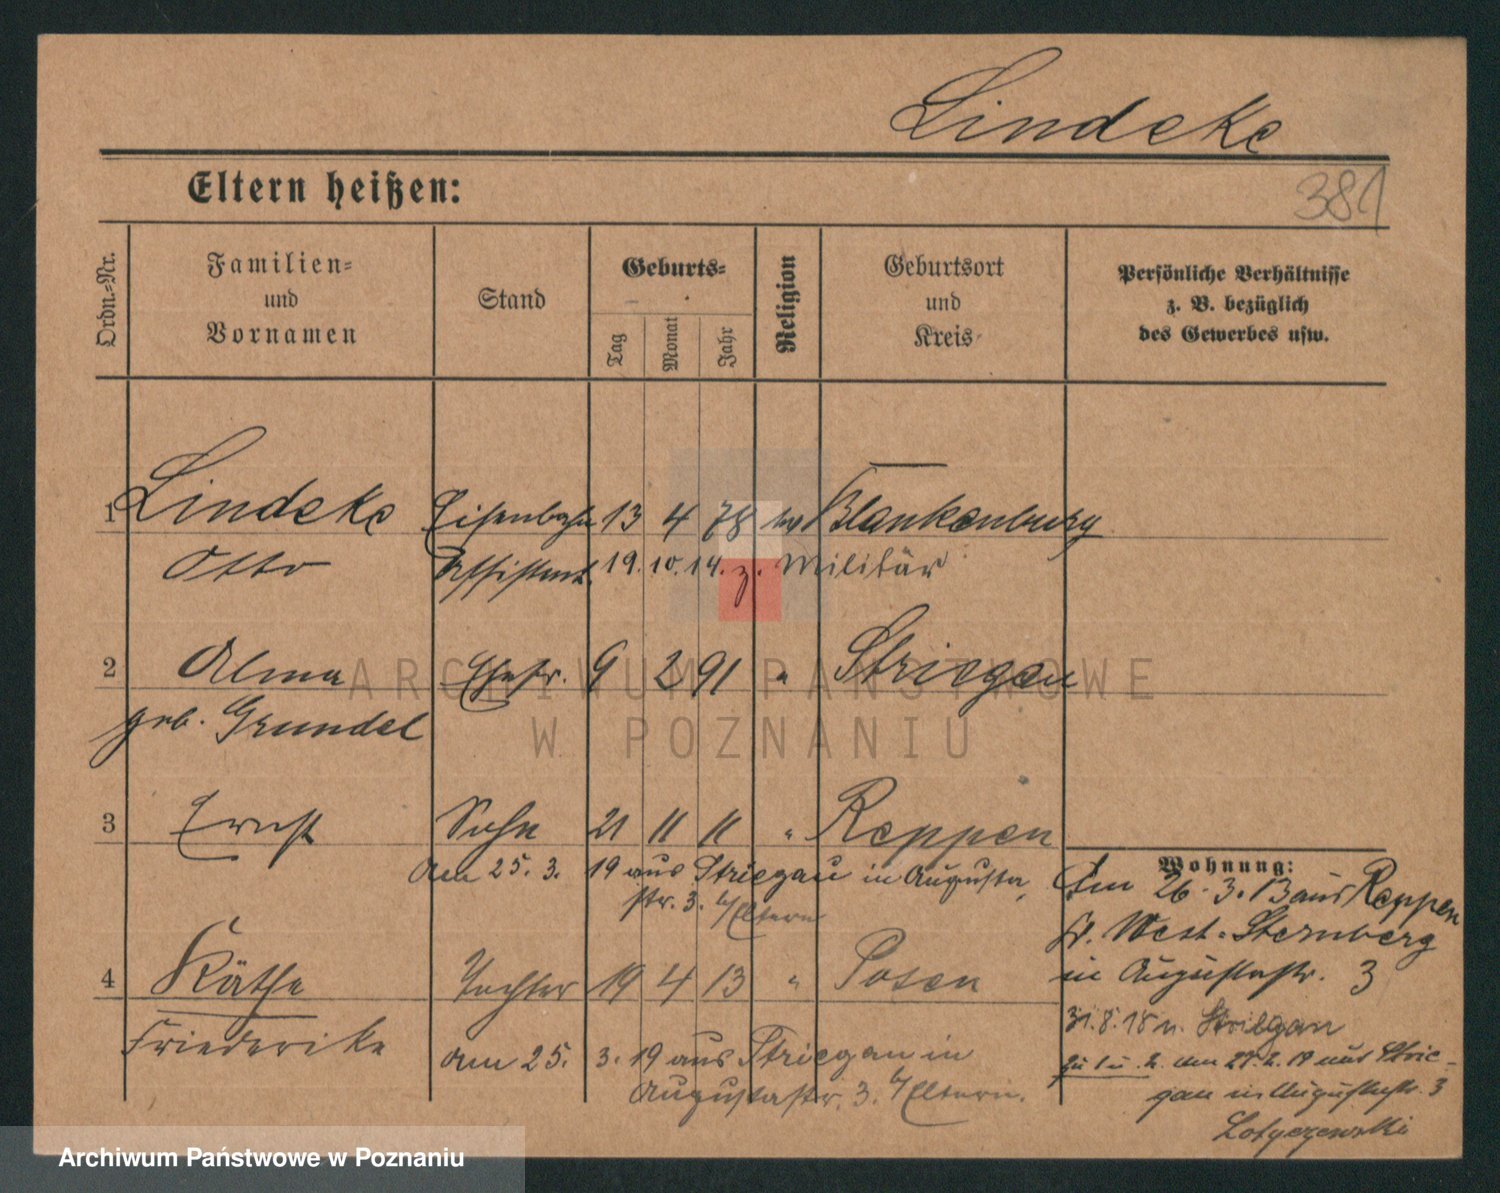 Lindeke
Eltern heißen:
381
Ordn.-Nr.
Familien-
und
Vornamen
Stand
Geburts-
Tag
Monat
Jahr
Religion
Geburtsort
und
Kreis
Persönliche Verhältnisse
z. B. bezüglich
des Gewerbes usw.
1 Lindeke Eisenbahn 13 4 78 ev Blankenburg
Otto Assistent. 19. 10. 14. z. Militär
2 Alma Ehefr. 9 2 91 " Striegau
geb. Grundel
3 Ernst Sohn 21 11 11 " Reppen
Am 25. 3. 19 aus Striegau in Augusta
str. 3. b/Eltern
4 Käthe Tochter 19 4 13 " Posen
Friederike
am 25. 3. 19 aus Striegau in
Augustastr. 3. b/Eltern.
Wohnung:
Am 26. 3. 13 aus Reppen
Kr. West-Sternberg
in Augustastr. 3
31. 8. 18 n. Striegau
zu 1 u. 2. am 27. 2. 19 aus Strie-
gau in Augustastr. 3
ARCHIWUM PAŃSTWOWE
W POZNANIU
Archiwum Państwowe w Poznaniu